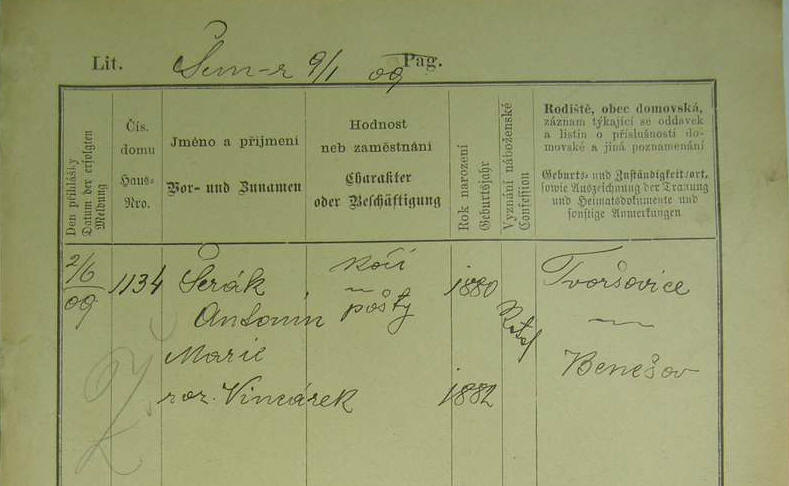 Lit. Šem-r 9/1 09 Pag.
Den přihlášky
Datum der erfolgten
Meldung
Čís.
domu
Haus-
Nro.
Jméno a příjmení
Vor- und Zunamen
Hodnost
neb zaměstnání
Charakter
oder Beschäftigung
Rok narození
Geburtsjahr
Vyznání náboženské
Confession
Rodiště, obec domovská,
záznam týkající se oddavek
a listin o příslušnosti do-
movské a jiná poznamenání
Geburts- und Zuständigkeitsort,
sowie Auszeichnung der Trauung
und Heimatsdokumente und
sonstige Anmerkungen
2/6
09
1134
Šerák
Antonín
Marie
roz. Vincárek
kočí
pošty
1880
1882
Kat
Tvoršovice
Benešov